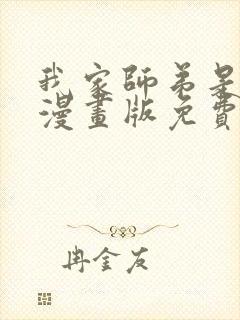 我家師弟是
漫畫版免費
冉金友